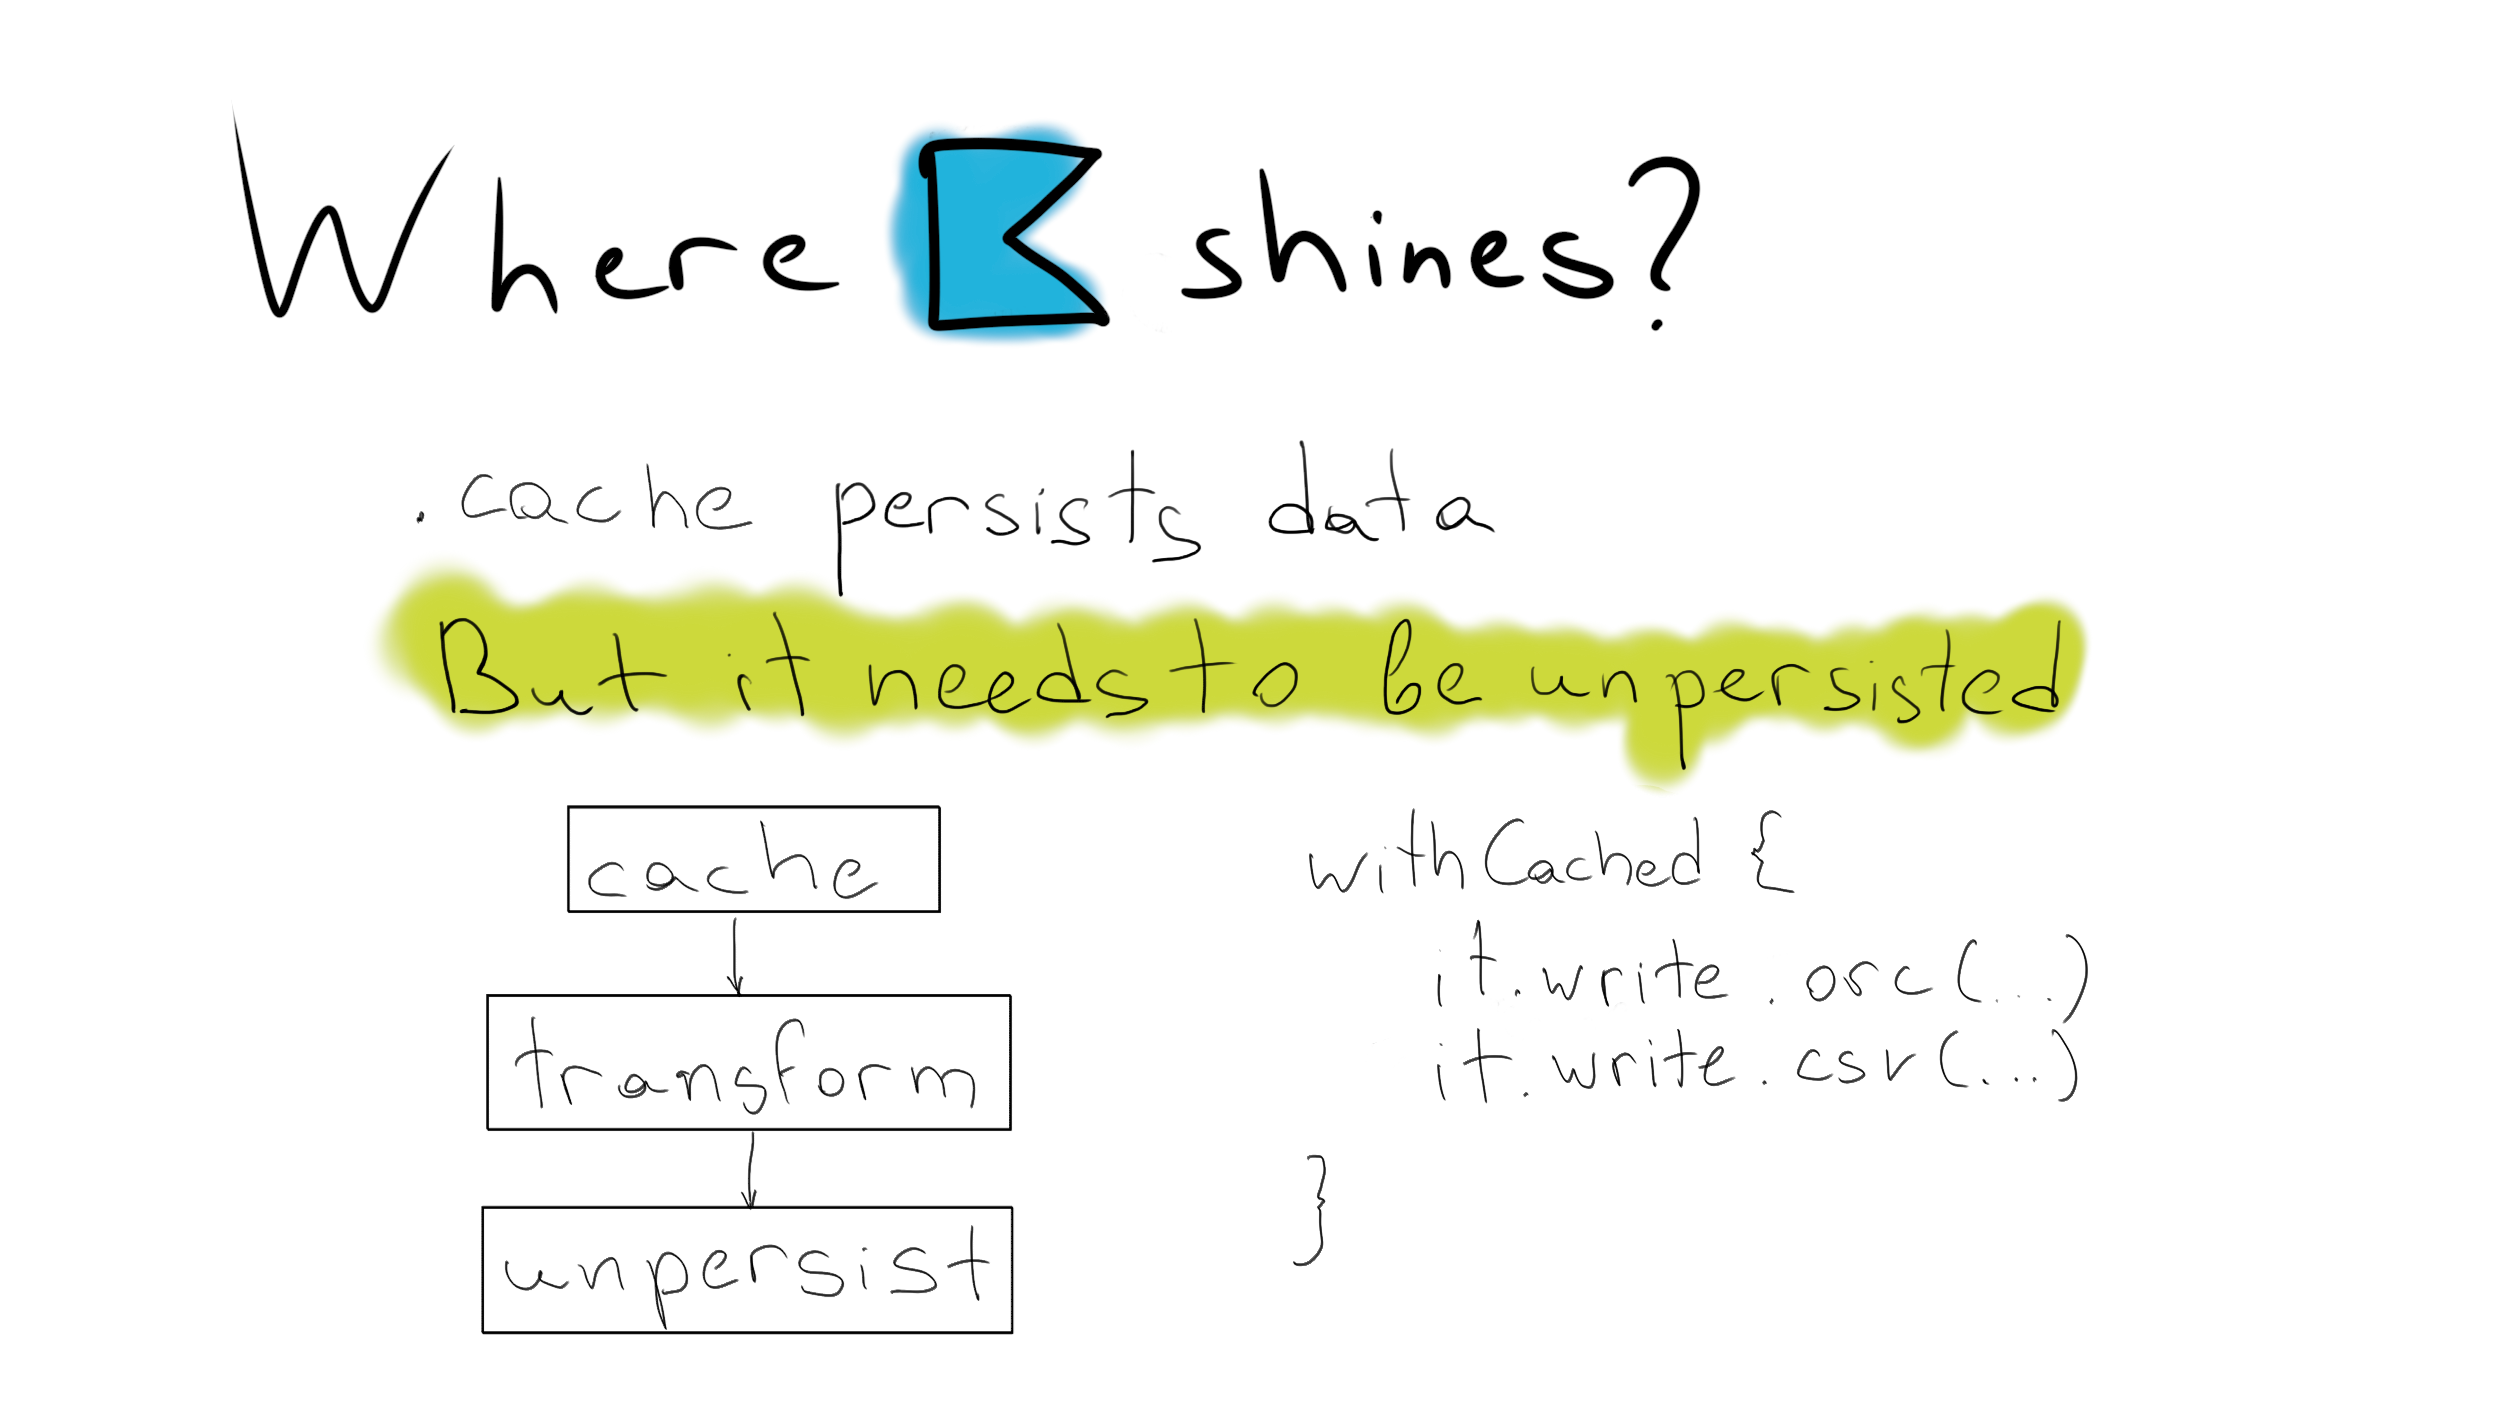 Where K shines?
.cache persists data
But it needs to be unpersisted
cache
transform
unpersist
withCached {
it.write.orc(...)
it.write.csv(...)
}